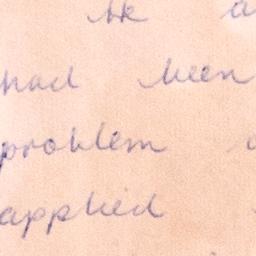 be a
had been
problem
applied